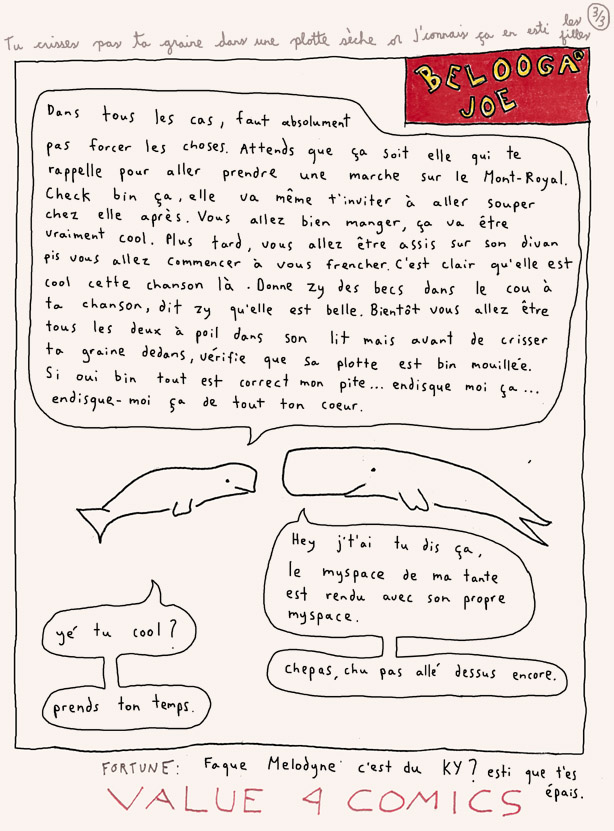 Tu crisses pas ta graine dans une plotte sèche or j'connais ça en esti les filles
3/3
BELOOGA
JOE
Dans tous les cas, faut absolument
pas forcer les choses. Attends que ça soit elle qui te
rappelle pour aller prendre une marche sur le Mont-Royal.
Check bin ça, elle va même t'inviter à aller souper
chez elle après. Vous allez bien manger, ça va être
vraiment cool. Plus tard, vous allez être assis sur son divan
pis vous allez commencer à vous frencher. C'est clair qu'elle est
cool cette chanson là. Donne zy des becs dans le cou à
ta chanson, dit zy qu'elle est belle. Bientôt vous allez être
tous les deux à poil dans son lit mais avant de crisser
ta graine dedans, vérifie que sa plotte est bin mouillée.
Si oui bin tout est correct mon pite... endisque moi ça...
endisque-moi ça de tout ton coeur.
Hey j't'ai tu dis ça,
le myspace de ma tante
est rendu avec son propre
myspace.
yé tu cool?
chepas, chu pas allé dessus encore.
prends ton temps.
FORTUNE: Faque Melodyne c'est du KY? esti que t'es
épais.
VALUE 4 COMICS